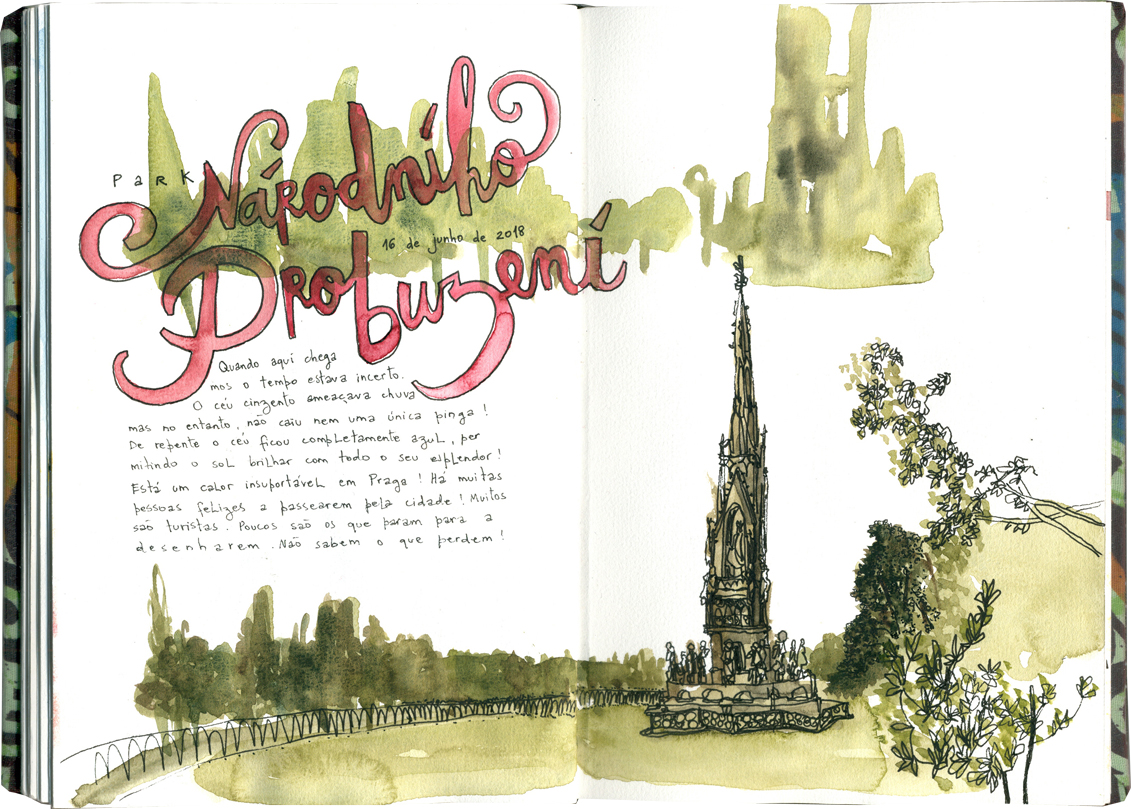 PaRK
Národního
Probuzení
16 de junho de 2018
Quando aqui chega
mos o tempo estava incerto.
O céu cinzento ameaçava chuva
mas no entanto, não caiu nem uma única pinga!
De repente o céu ficou completamente azul, per
mitindo o sol brilhar com todo o seu esplendor!
Está um calor insuportável em Praga! Há muitas
pessoas felizes a passearem pela cidade! Muitos
são turistas. Poucos são os que param para a
desenharem. Não sabem o que perdem!